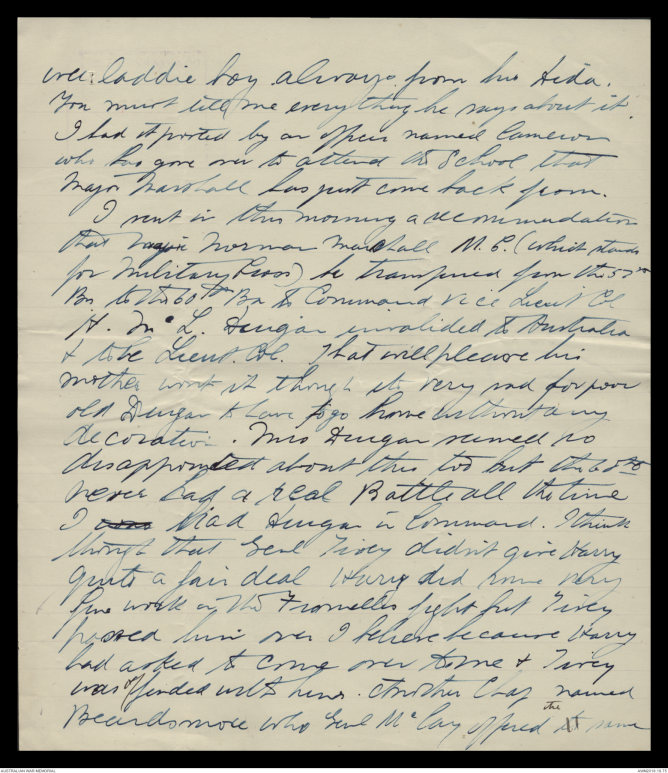 wee: laddie boy always from his Aida.
You must tell me everything he says about it.
I had it posted by an officer named Cameron
who has gone over to attend the School that
Major Marshall has just come back from.
I sent in this morning a recommendation
that Major Norman Marshall M.C. (which stands
for Military Cross) be transferred from the 57th
Bn to the 60th Bn to Command vice Lieut Col
H. McL. Duigan invalided to Australia
& to be Lieut. Col. That will please his
mother wont it though its very sad for poor
old Duigan to have to go home without any
decoration. Mrs Duigan seemed so
disappointed about this too but the 60th
never had a real Battle all the time
I had Duigan in Command. I think
though that Genl Tivey didn't give Harry
quite a fair deal Harry did some very
fine work in the Fromelles fight but Tivey
passed him over I believe because Harry
had asked to come over to me & Tivey
was offended with him. Another Chap named
Beardsmore who Genl McCay offered the same
AUSTRALIAN WAR MEMORIAL